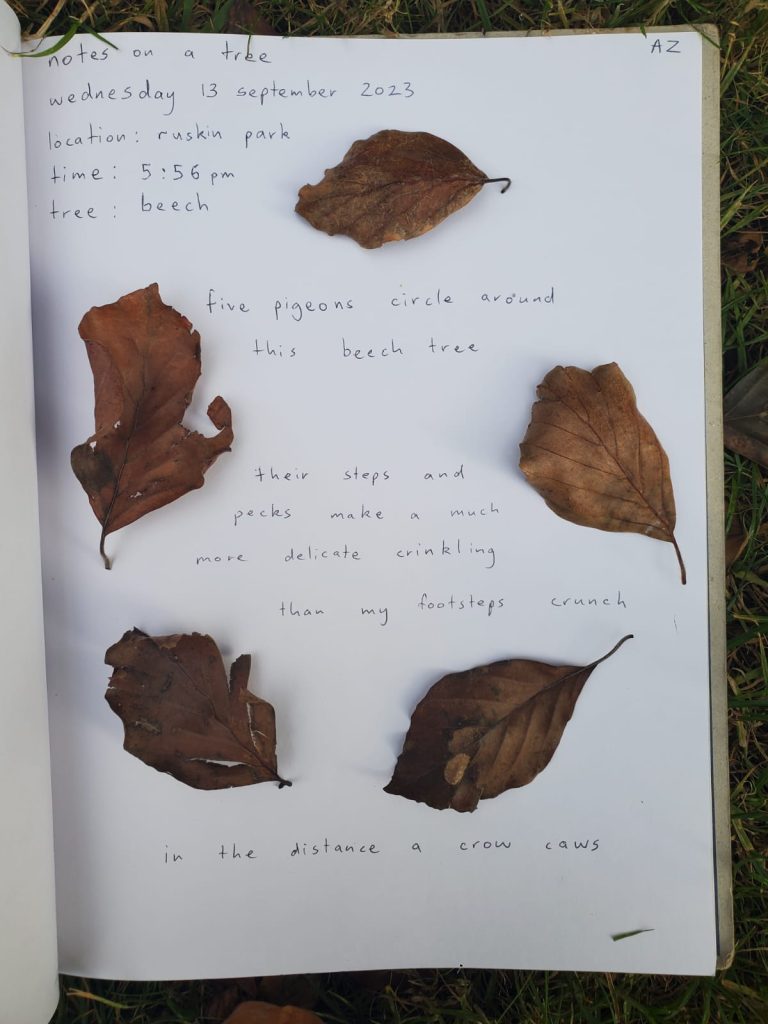 notes on a tree
AZ
wednesday 13 september 2023
location: ruskin park
time: 5:56 pm
tree: beech
five pigeons circle around
this beech tree
their steps and
pecks make a much
more delicate crinkling
than my footsteps crunch
in the distance a crow caws